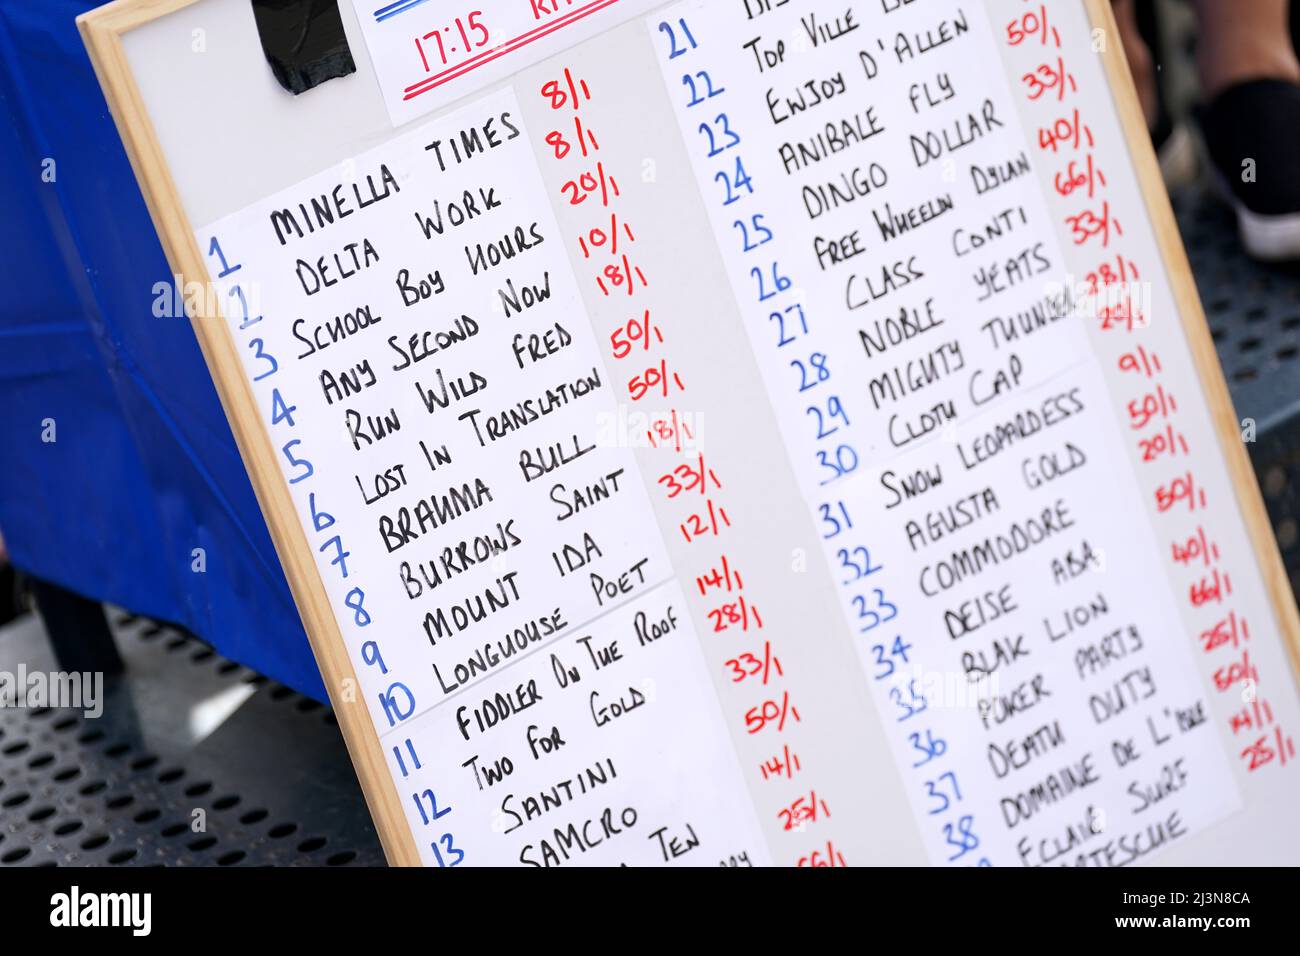 17:15
1 MINELLA TIMES 8/1
2 DELTA WORK 8/1
3 SCHOOL BOY HOURS 20/1
4 ANY SECOND NOW 10/1
5 RUN WILD FRED 18/1
6 LOST IN TRANSLATION 50/1
7 BRAHMA BULL 50/1
8 BURROWS SAINT 18/1
9 MOUNT IDA 33/1
10 LONGHOUSE POET 12/1
11 FIDDLER ON THE ROOF 14/1
12 TWO FOR GOLD 28/1
13 SANTINI 33/1
SAMCRO 50/1
TEN 14/1
25/1
66/1
21 TOP VILLE
22 ENJOY D'ALLEN
23 ANIBALE FLY 50/1
24 DINGO DOLLAR 33/1
25 FREE WHEELIN DYLAN 40/1
26 CLASS CONTI 66/1
27 NOBLE YEATS 33/1
28 MIGHTY THUNDER 28/1
29 CLOTH CAP 20/1
30 SNOW LEOPARDESS 9/1
31 AGUSTA GOLD 50/1
32 COMMODORE 20/1
33 DEISE ABA 50/1
34 BLAK LION 40/1
35 POKER PARTY 66/1
36 DEATH DUTY 25/1
37 DOMAINE DE L'ISLE 50/1
38 ECLAIR SURF 14/1
25/1
alamy
Image ID: 2J3N8CA
www.alamy.com